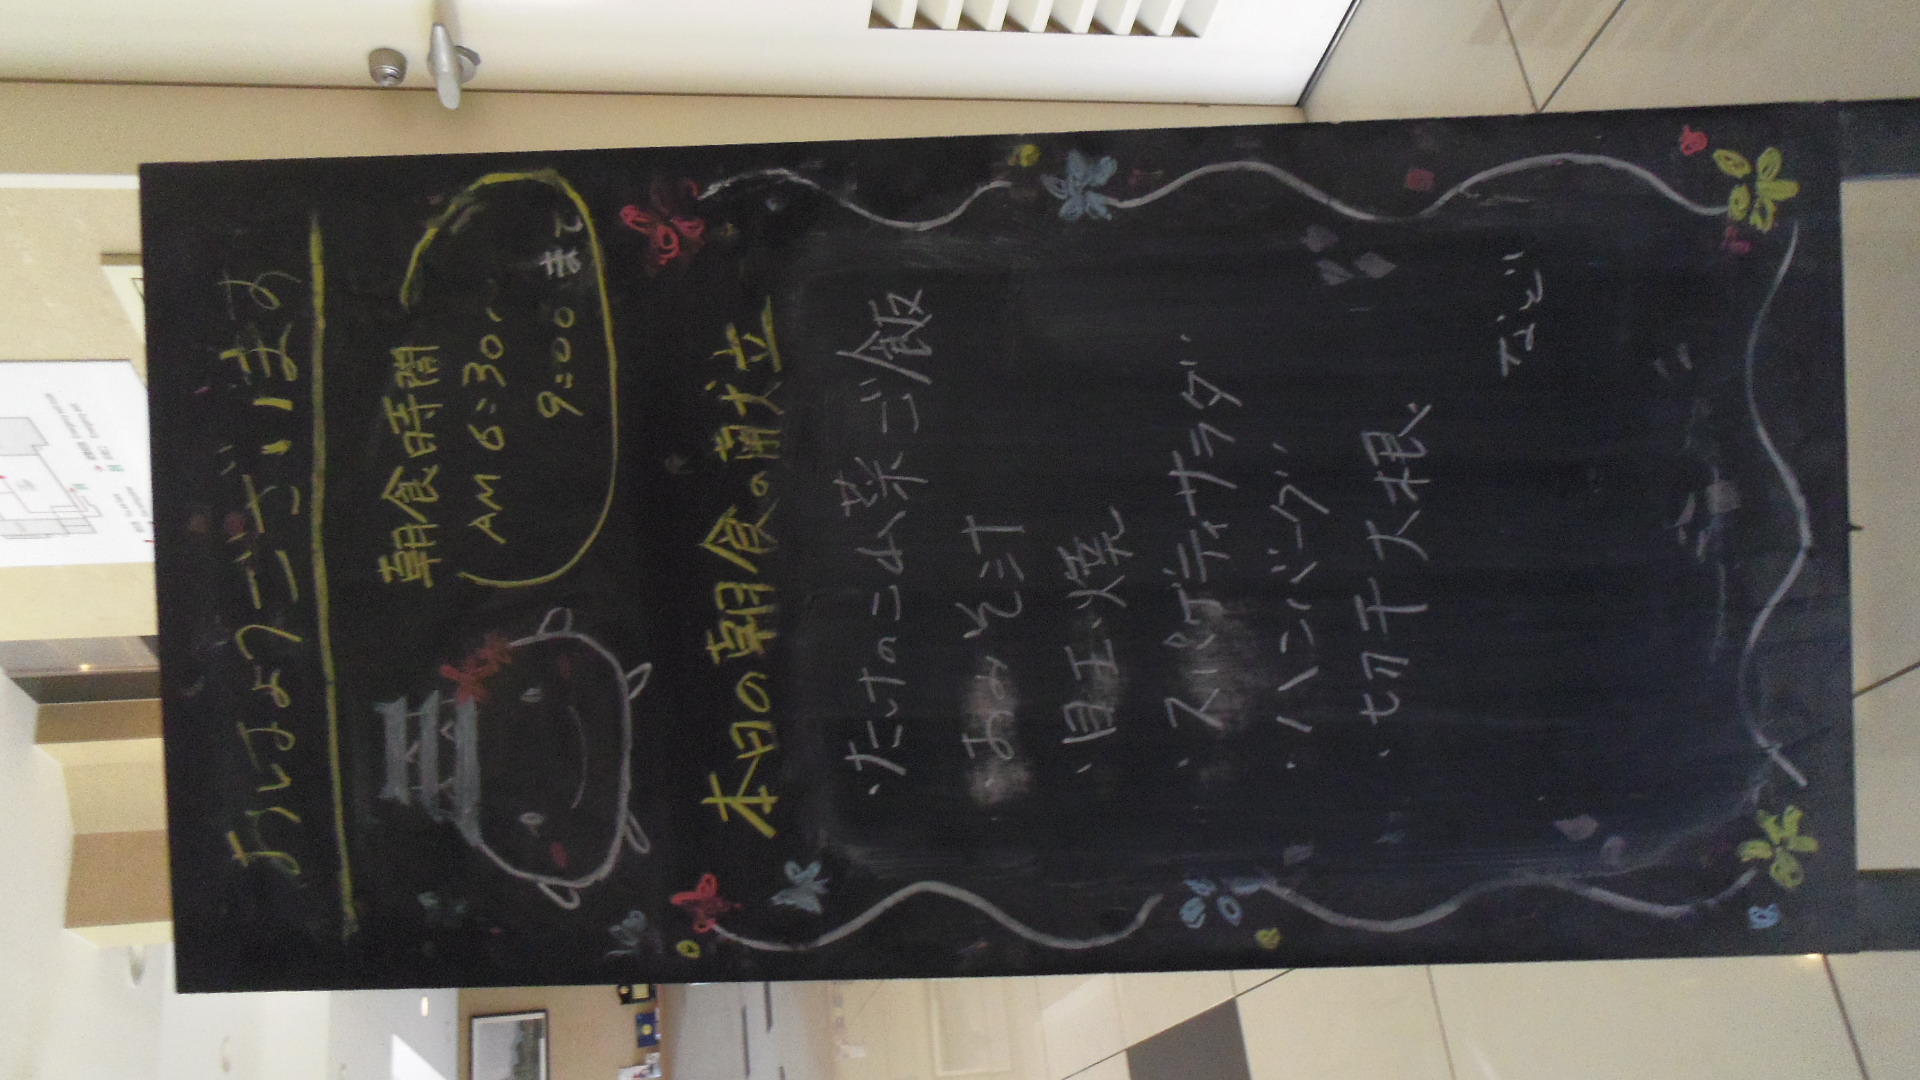 おはようございます
朝食時間
AM 6:30〜
9:00まで
本日の朝食の献立
・たけのこ山菜ご飯
・おみそ汁
・目玉焼
・スパゲティサラダ
・ハンバーグ
・切干大根
など